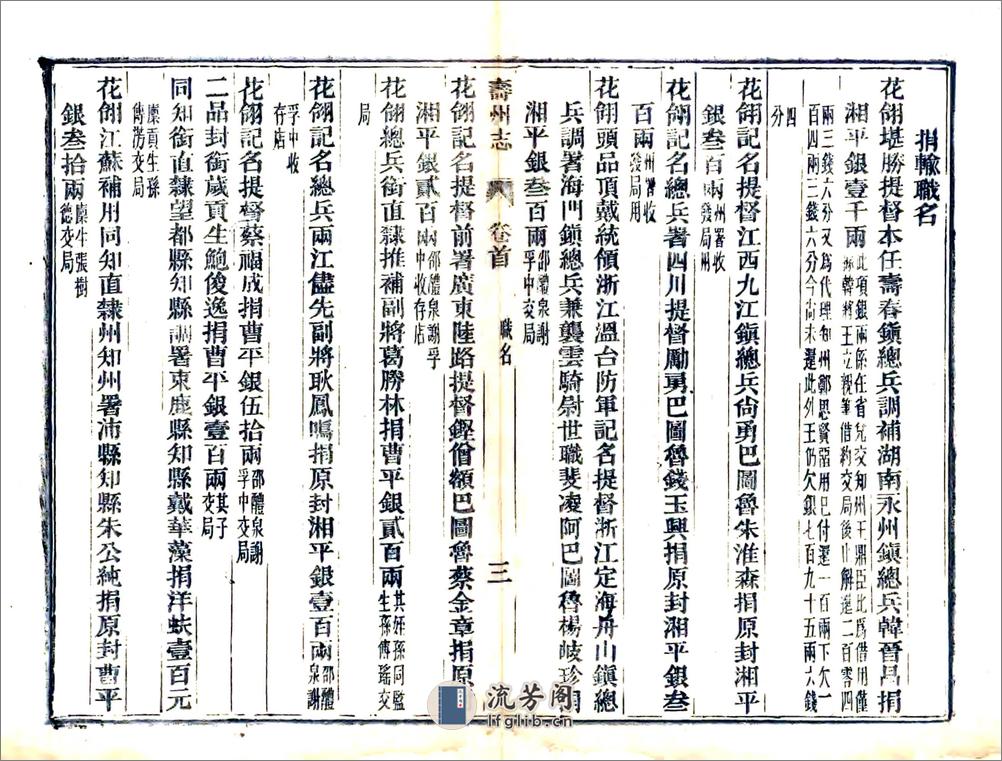 捐輸職名
花翎堪勝提督本任壽春鎮總兵調補湖南永州鎮總兵韓晉昌捐
湘平銀壹千兩此項銀兩係在省兌交知州王鼎臣比爲借用僅
韓將王立親筆借約交局後止解還二百零四
兩三錢六分又爲代理知州鄒思賢濫用已付還一百兩下欠一
百四兩三錢六分今尚未還此列王仍欠銀七百九十五兩六錢
四
分
花翎記名提督江西九江鎮總兵尙勇巴圖魯朱淮森捐原封湘平
銀叁百兩州署收
發局用
花翎記名總兵署四川提督勵勇巴圖魯錢玉興捐原封湘平銀叁
百兩州署收
發局用
花翎頭品頂戴統領浙江溫台防軍記名提督浙江定海舟山鎮總
兵調署海門鎮總兵兼襲雲騎尉世職斐凌阿巴圖魯楊岐珍捐
湘平銀叁百兩邵體泉謝
孚中交局
壽州志 卷首 職名 三
花翎記名提督前署廣東陸路提督鏗僧額巴圖魯蔡金章捐原
湘平銀貳百兩邵體泉謝孚
中收存店
花翎總兵銜直隸推補副將葛勝林捐曹平銀貳百兩其姪孫同監
生孫傳瑤交
局
花翎記名總兵兩江儘先副將耿鳳鳴捐原封湘平銀壹百兩邵體
泉謝
孚中收
存店
花翎記名提督蔡福成捐曹平銀伍拾兩邵體泉謝
孚中交局
二品封銜歲貢生鮑俊逸捐曹平銀壹百兩其子
交局
同知銜直隸望都縣知縣調署束鹿縣知縣戴華藻捐洋蚨壹百元
廩貢生孫
傳澇交局
花翎江蘇補用同知直隸州知州署沛縣知縣朱公純捐原封曹平
銀叁拾兩廩生張樹
德交局
流芳阁
lfglib.cn